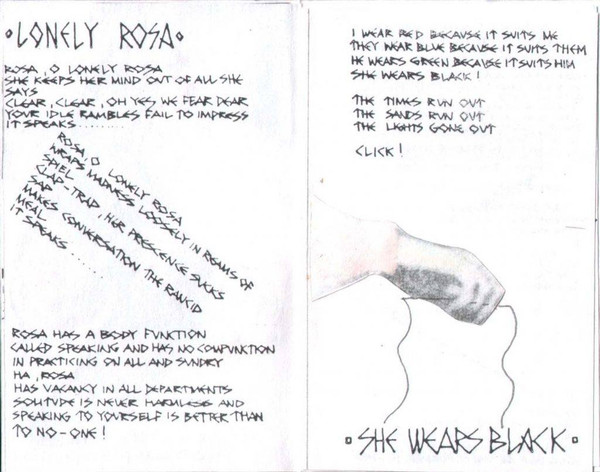 ·LONELY ROSA·
ROSA, O LONELY ROSA
SHE KEEPS HER MIND OUT OF ALL SHE
SAYS
CLEAR, CLEAR, OH YES, WE FEAR DEAR
YOUR IDLE RAMBLES FAIL TO IMPRESS
IT SPEAKS.........
ROSA, O LONELY ROSA
WRAPS MADNESS LOOSELY IN REAMS OF
SPIEL
CLAP-TRAP, HER PRESCENCE SUCKS
SAP
MAKES CONVERSATION THE RANCID
MEAL
IT SPEAKS.......
ROSA HAS A BODY FUNCTION
CALLED SPEAKING AND HAS NO COMPUNCTION
IN PRACTICING ON ALL AND SUNDRY
HA, ROSA
HAS VACANCY IN ALL DEPARTMENTS
SOLITUDE IS NEVER HARMLESS AND
SPEAKING TO YOURSELF IS BETTER THAN
TO NO-ONE!
I WEAR RED BECAUSE IT SUITS ME
THEY WEAR BLUE BECAUSE IT SUITS THEM
HE WEARS GREEN BECAUSE IT SUITS HIM
SHE WEARS BLACK!
THE TIMES RUN OUT
THE SANDS RUN OUT
THE LIGHTS GONE OUT
CLICK!
·SHE WEARS BLACK·